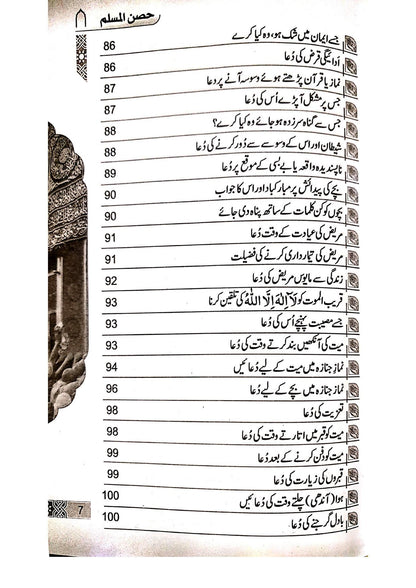 حصن المسلم
جسے ایمان میں شک ہو، وہ کیا کرے 86
ادائیگی قرض کی دُعا 86
نماز یا قرآن پڑھتے ہوئے وسوسہ آنے پر دعا 87
جس پر مشکل آ پڑے اُس کی دُعا 87
جس سے گناہ سرزد ہو جائے وہ کیا کرے؟ 88
شیطان اور اس کے وسوسے دُور کرنے کی دُعا 88
ناپسندیدہ واقعہ یا بے بسی کے موقع پر دُعا 89
بچے کی پیدائش پر مبارکباد اور اس کا جواب 90
بچوں کو کن کلمات کے ساتھ پناہ دی جائے 90
مریض کی عیادت کے وقت دُعا 91
مریض کی تیمارداری کرنے کی فضیلت 91
زندگی سے مایوس مریض کی دُعا 92
قریب الموت کو لَآ اِلٰهَ اِلَّا اللّٰهُ کی تلقین کرنا 93
جسے مصیبت پہنچے اُس کی دُعا 93
میت کی آنکھیں بند کرتے وقت کی دُعا 93
نماز جنازہ میں میت کے لیے دُعائیں 94
نماز جنازہ میں بچے کے لیے دُعا 96
تعزیت کی دُعا 98
میت کو قبر میں اتارتے وقت کی دُعا 98
میت کو دفن کرنے کے بعد دُعا 99
قبروں کی زیارت کی دُعا 99
ہوا (آندھی) چلتے وقت کی دُعائیں 100
بادل گرجنے کی دُعا 100
7